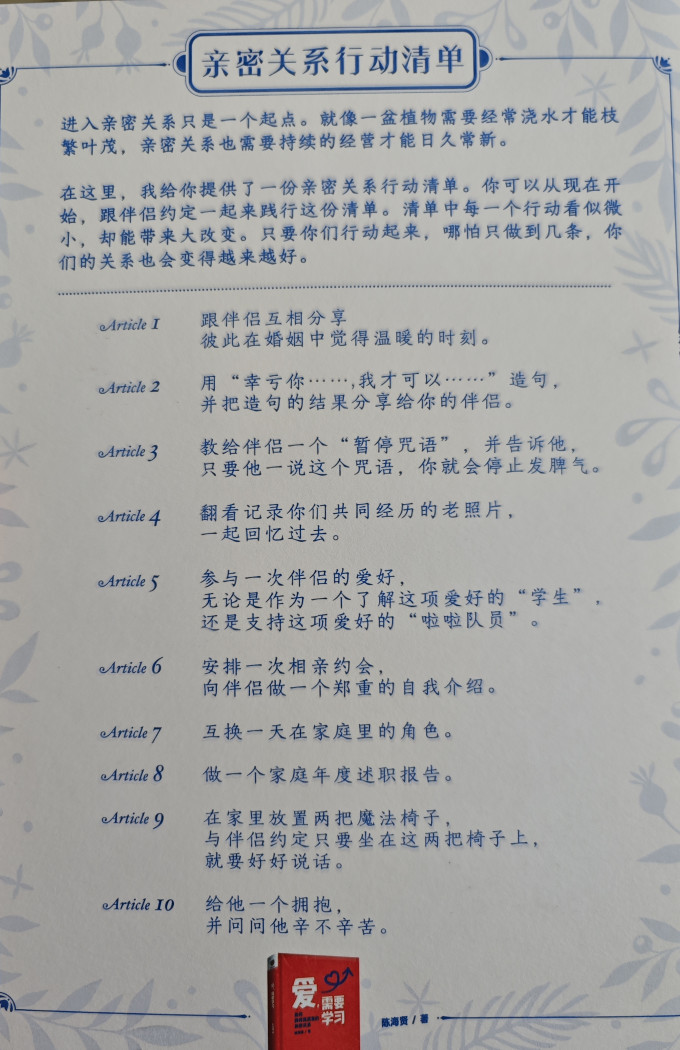 亲密关系行动清单
进入亲密关系只是一个起点。就像一盆植物需要经常浇水才能枝
繁叶茂，亲密关系也需要持续的经营才能日久常新。
在这里，我给你提供了一份亲密关系行动清单。你可以从现在开
始，跟伴侣约定一起来践行这份清单。清单中每一个行动看似微
小，却能带来大改变。只要你们行动起来，哪怕只做到几条，你
们的关系也会变得越来越好。
Article 1
跟伴侣互相分享
彼此在婚姻中觉得温暖的时刻。
Article 2
用“幸亏你……,我才可以……”造句，
并把造句的结果分享给你的伴侣。
Article 3
教给伴侣一个“暂停咒语”，并告诉他，
只要他一说这个咒语，你就会停止发脾气。
Article 4
翻看记录你们共同经历的老照片，
一起回忆过去。
Article 5
参与一次伴侣的爱好，
无论是作为一个了解这项爱好的“学生”，
还是支持这项爱好的“啦啦队员”。
Article 6
安排一次相亲约会，
向伴侣做一个郑重的自我介绍。
Article 7
互换一天在家庭里的角色。
Article 8
做一个家庭年度述职报告。
Article 9
在家里放置两把魔法椅子，
与伴侣约定只要坐在这两把椅子上，
就要好好说话。
Article 10
给他一个拥抱，
并问问他辛不辛苦。
爱，需要
学习
陈海贤 / 著